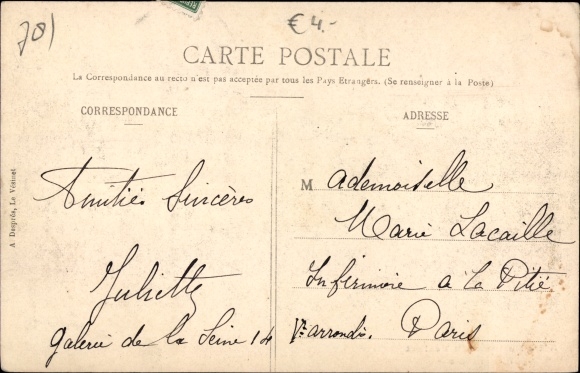 701
€ 4.-
CARTE POSTALE
La Correspondance au recto n'est pas acceptée par tous les Pays Etrangers. (Se renseigner à la Poste)
CORRESPONDANCE
Amitiés Sincères
Juliette
galerie de la Seine 14
ADRESSE
Mademoiselle
Marie Lacaille
Infirmière à La Pitié
Vᵉ arrondi. Paris
A. Desprès, Le Vésinet